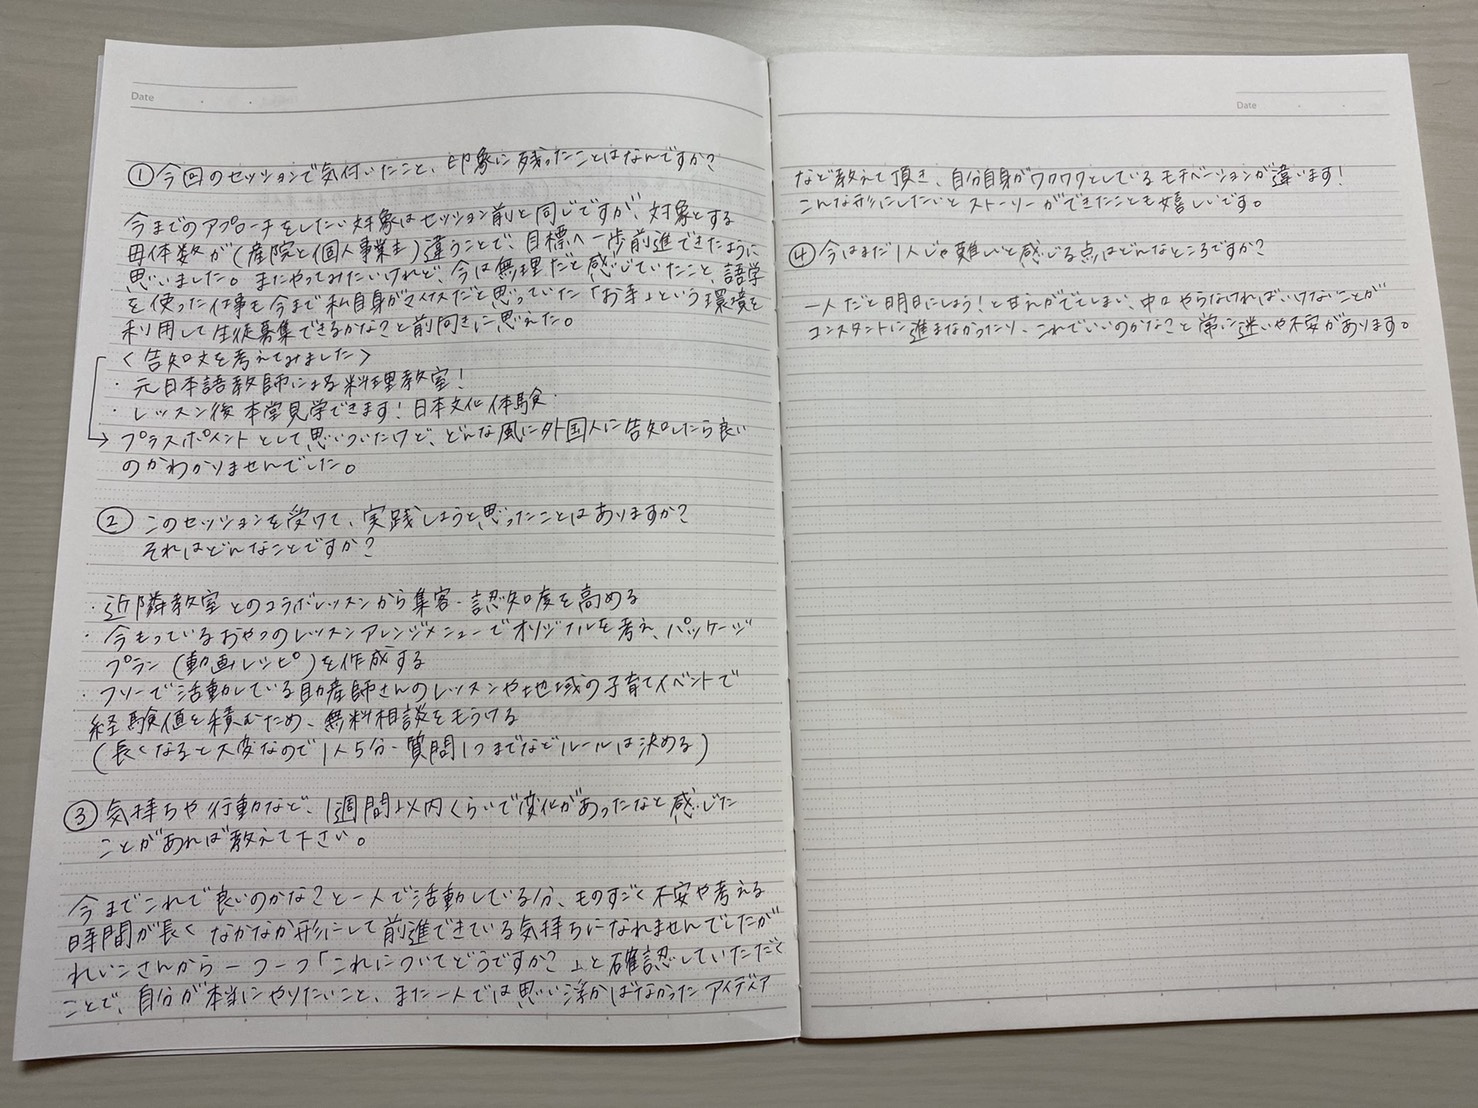 Date
①今回のセッションで気付いたこと、印象に残ったことはなんですか?
今までのアプローチをしたい対象はセッション前と同じですが、対象とする
母体数が(産院と個人事業主)違うことで、目標へ一歩前進できたように
思いました。またやってみたいけれど、今は無理だと感じていたこと、語学
を使った仕事も今まで私自身がマイナスだと思っていた「お寺」という環境を
利用して生徒募集できるかな?と前向きに思えた。
<告知文を考えてみました>
・元日本語教師による料理教室!
・レッスン後本堂見学できます!日本文化体験
→プラスポイントとして思いついたけど、どんな風に外国人に告知したら良い
のかわかりませんでした。
②このセッションを受けて、実践しようと思ったことはありますか?
それはどんなことですか?
・近隣教室とのコラボレッスンから集客・認知度を高める
・今もっているおやつのレッスンアレンジメニューでオリジナルを考え、パッケージ
プラン(動画レシピ)を作成する
・フリーで活動している助産師さんのレッスンや地域の子育てイベントで
経験値を積むため、無料相談をもうける
(長くなると大変なので1人5分・質問1つまでなどルールは決める)
③気持ちや行動など、1週間以内くらいで変化があったなと感じた
ことがあれば教えて下さい。
今までこれで良いのかな?と一人で活動している分、ものすごく不安や考える
時間が長くなかなか形にして前進できている気持ちになれませんでしたが
れいこさんから一つ一つ「これについてどうですか?」と確認していただく
ことで、自分が本当にやりたいこと、また一人では思い浮かばなかったアイディア
Date
など教えて頂き、自分自身がワクワクとしているモチベーションが違います!
こんな形にしたいとストーリーができたことも嬉しいです。
④今はまだ1人じゃ難しいと感じる点はどんなところですか?
一人だと明日にしよう!と甘えがでてしまい、中々やらなければいけないことが
コンスタントに進まなかったり、これでいいのかな?と常に迷いや不安があります。